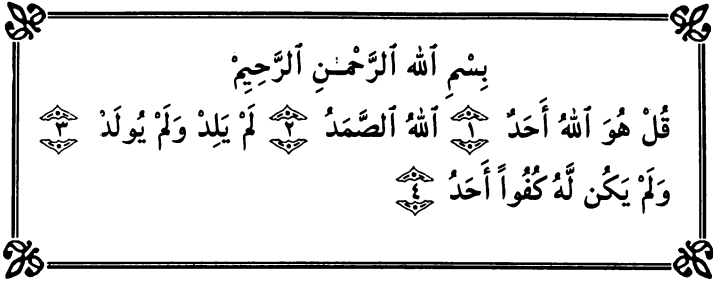 بِسْمِ ٱللهِ ٱلرَّحْمَـٰنِ ٱلرَّحِيمِ
قُلْ هُوَ ٱللهُ أَحَدٌ ﴿١﴾ ٱللهُ ٱلصَّمَدُ ﴿٢﴾ لَمْ يَلِدْ وَلَمْ يُولَدْ ﴿٣﴾
وَلَمْ يَكُن لَّهُ كُفُواً أَحَدُ ﴿٤﴾